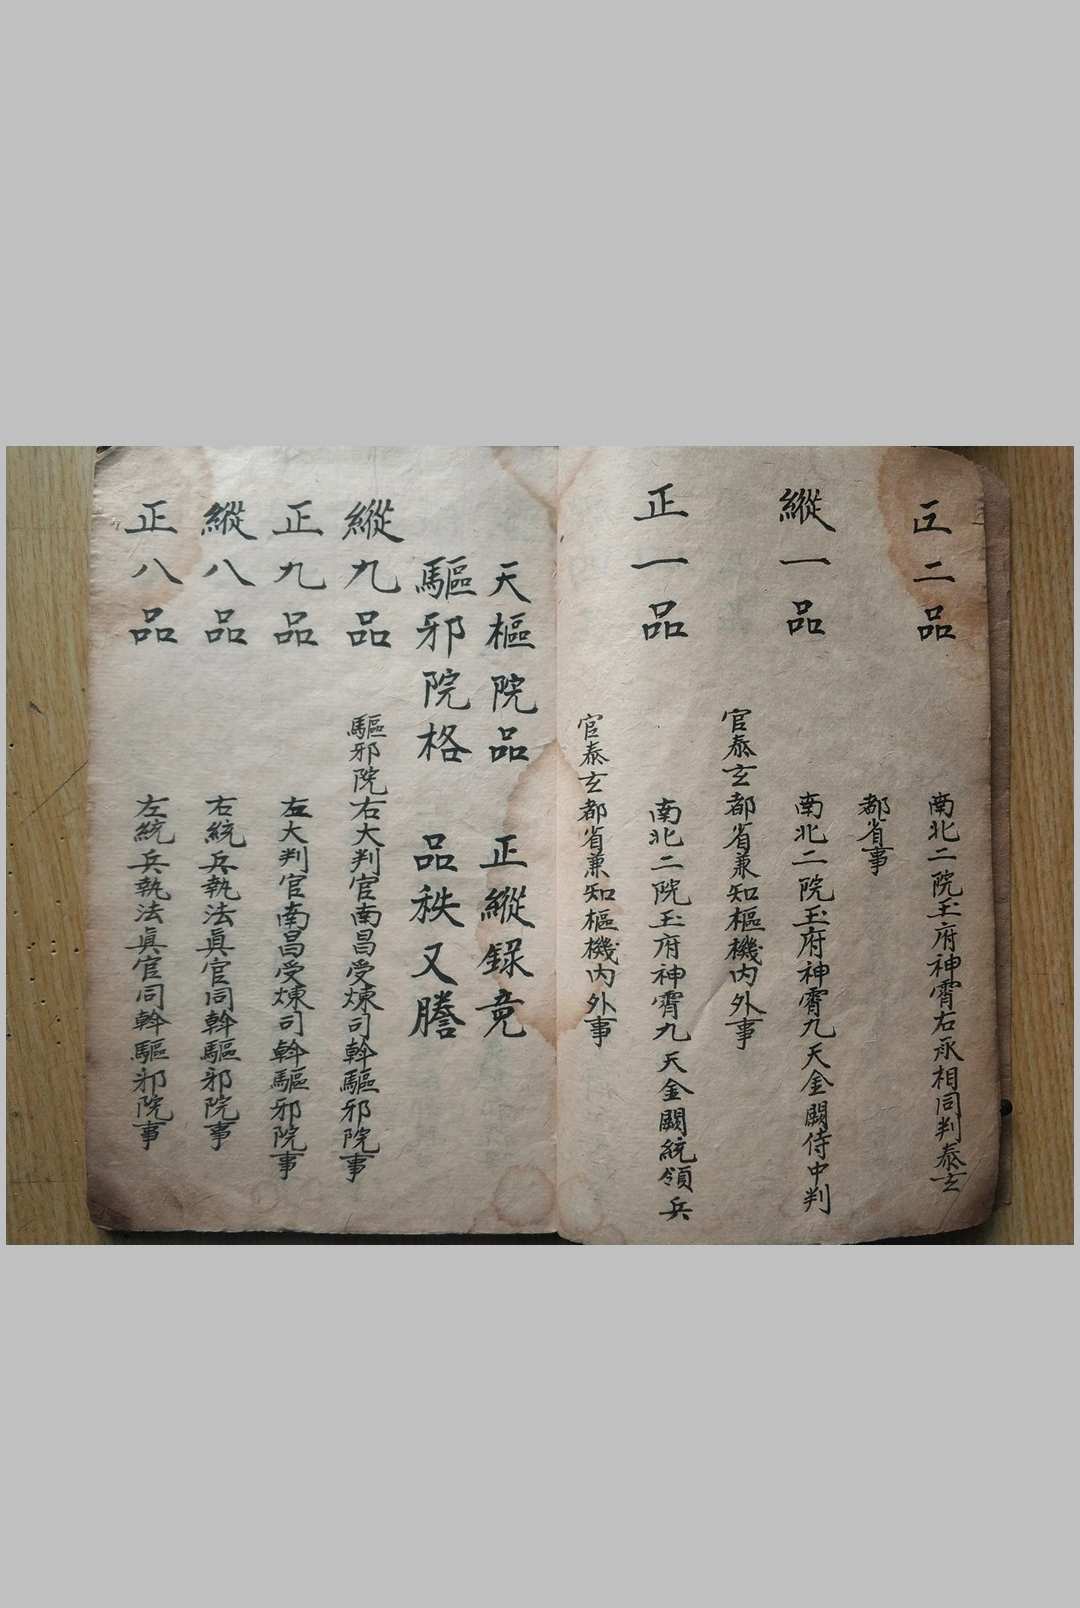 正二品
南北二院玉府神霄右丞相同判泰玄
都省事
縱一品
南北二院玉府神霄九天金闕侍中判
官泰玄都省兼知樞機内外事
正一品
南北二院玉府神霄九天金闕統領兵
官泰玄都省兼知樞機内外事
天樞院品 正縱錄竟
驅邪院格 品秩又謄
縱九品 驅邪院右大判官南昌受煉司幹驅邪院事
正九品 左大判官南昌受煉司幹驅邪院事
縱八品 右統兵執法眞官同幹驅邪院事
正八品 左統兵執法眞官同幹驅邪院事